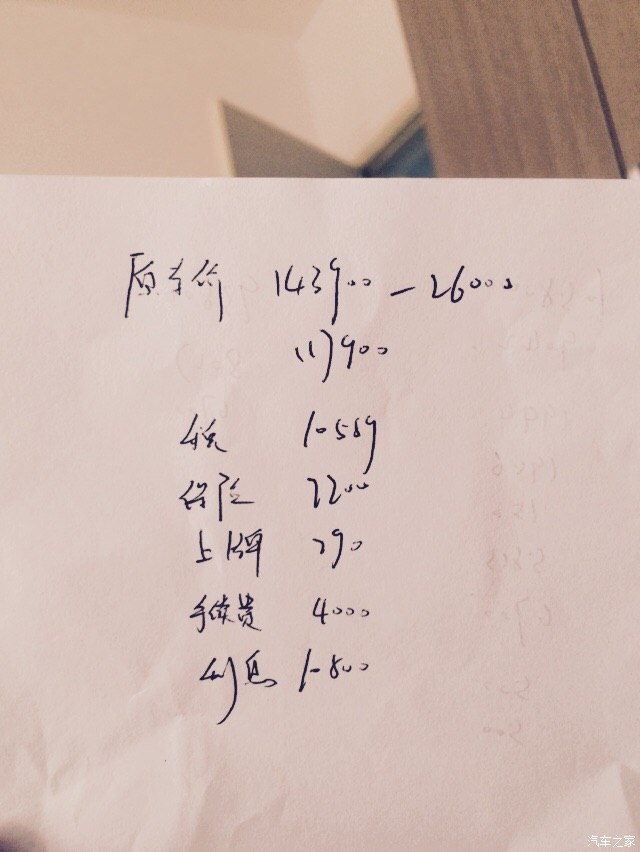 原车价 143900-26000
117900
税 10559
保险 7200
上牌 790
手续费 4000
利息 10800
汽车之家